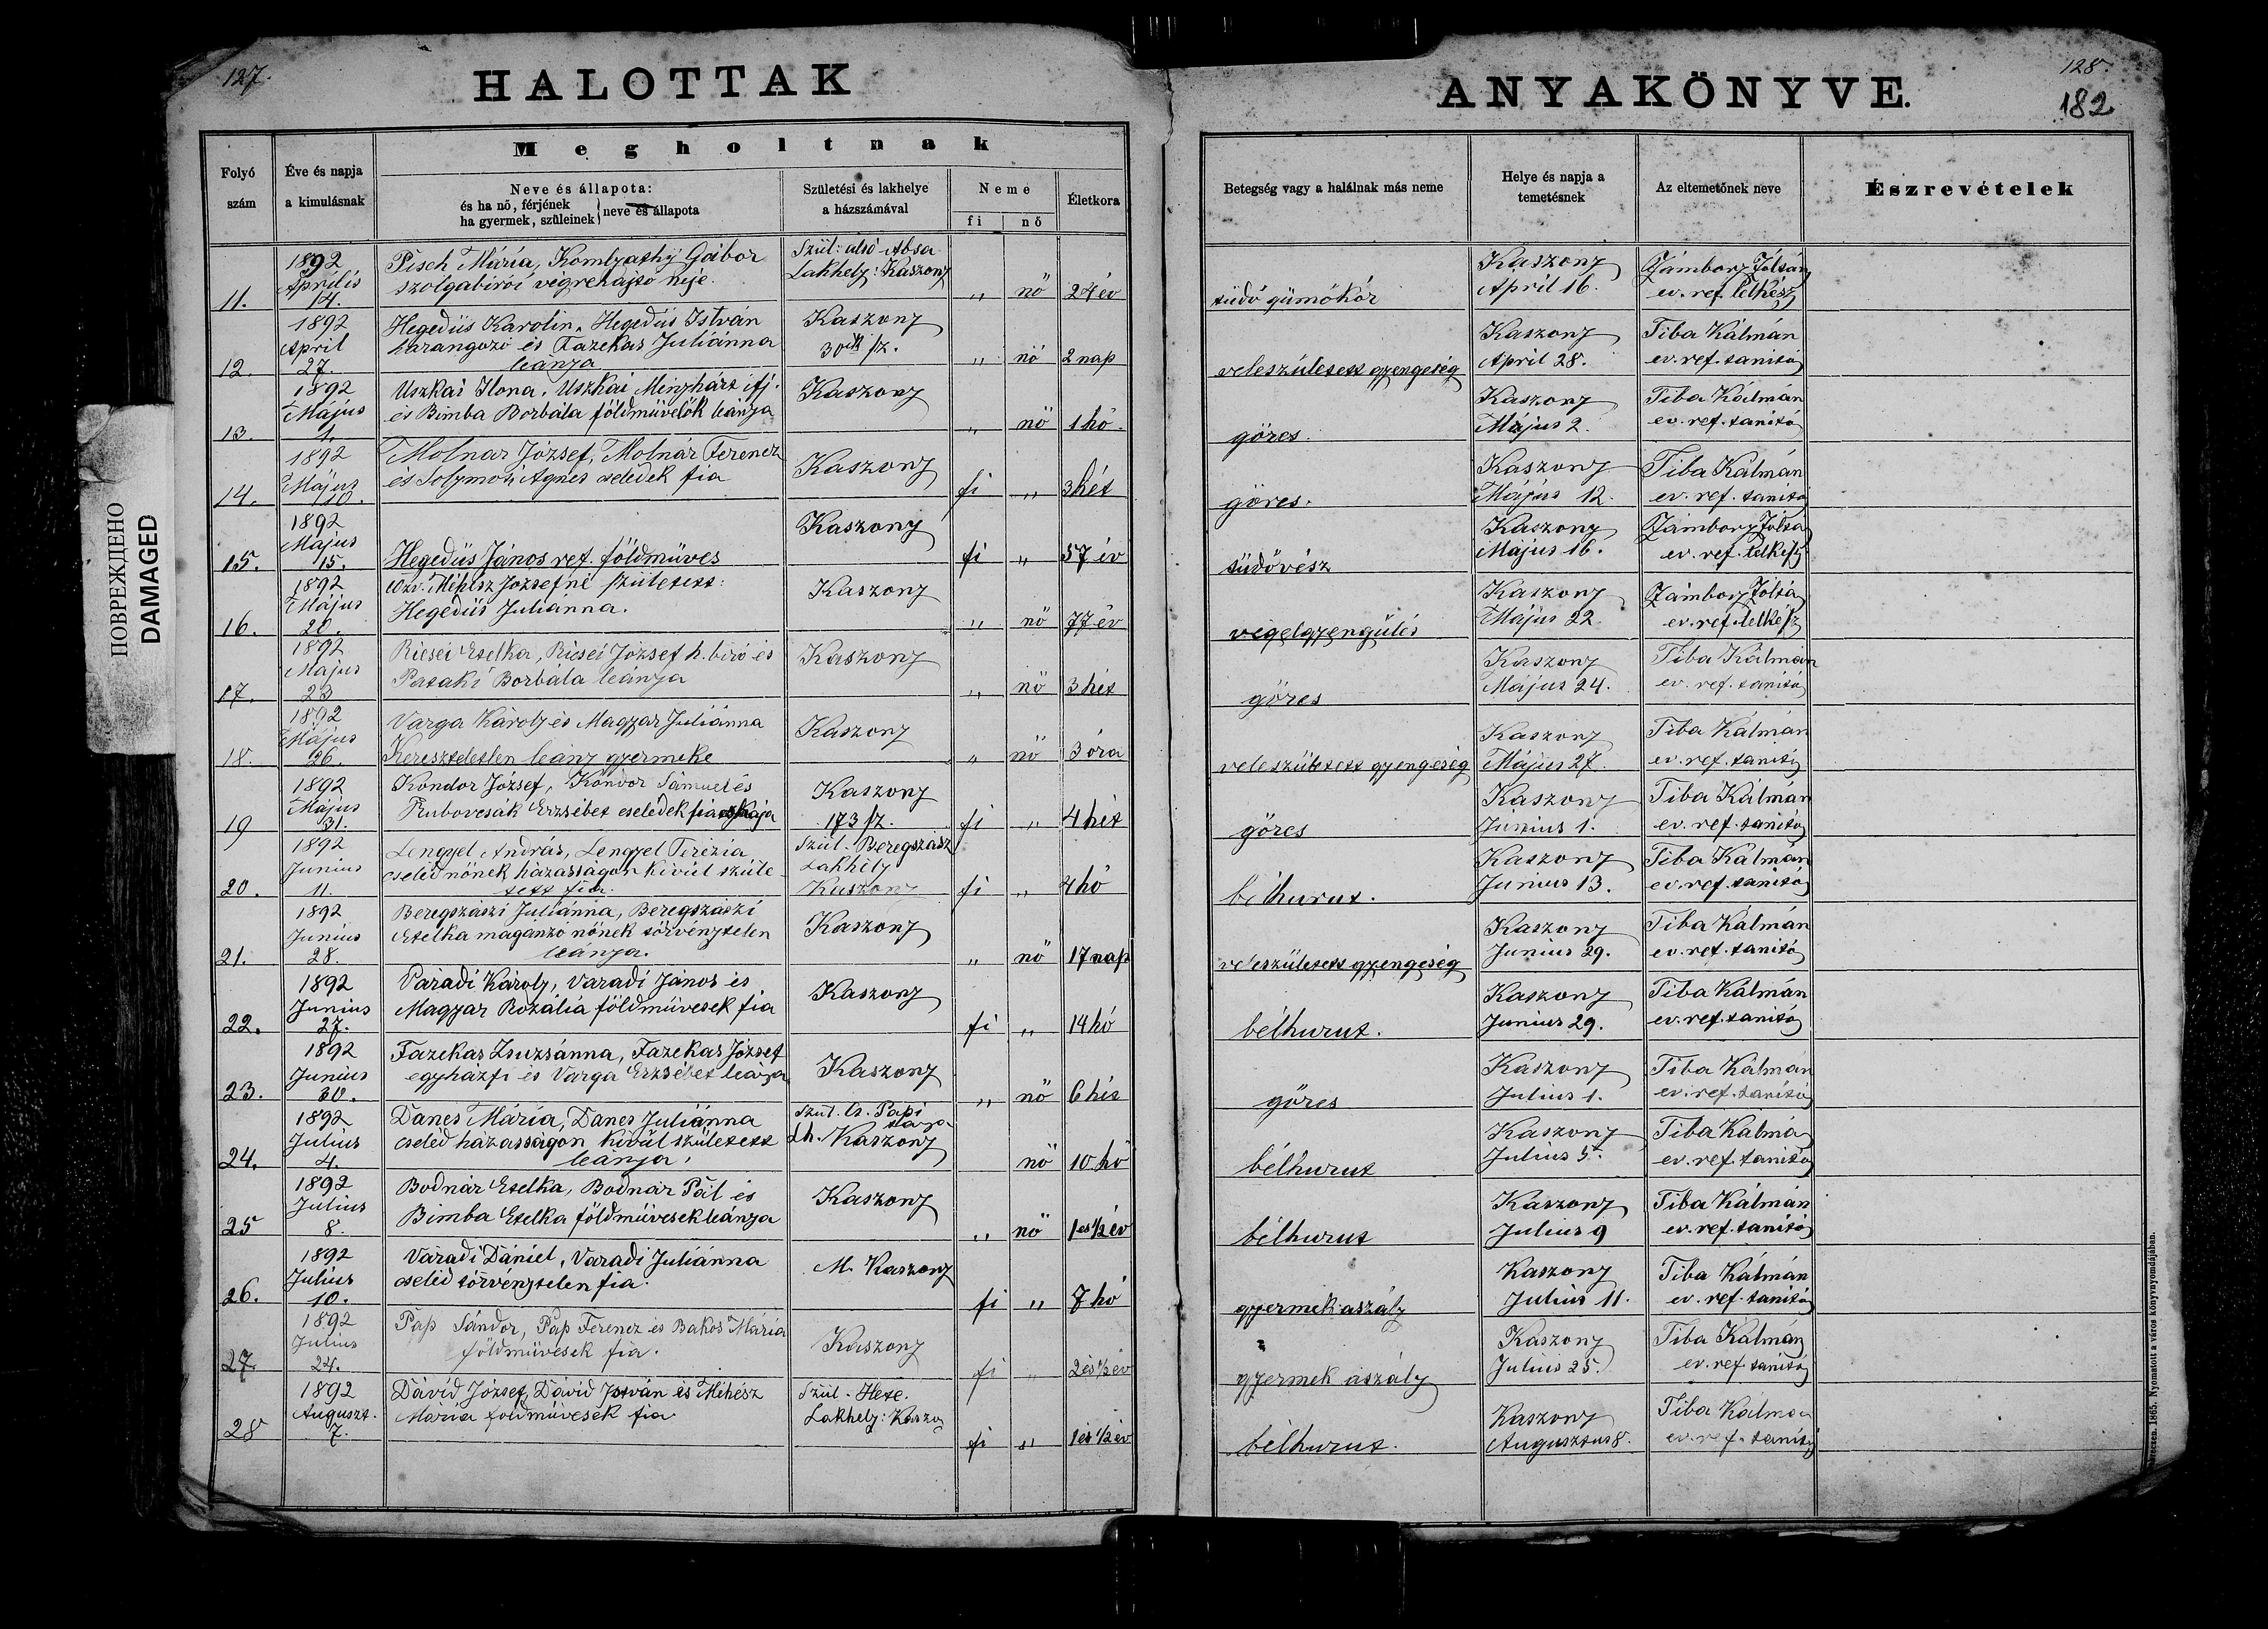 127.
HALOTTAK
Megholtnak
Folyó szám
Éve és napja a kimulásnak
Neve és állapota:
és ha nő, férjének
ha gyermek, szüleinek } neve és állapota
Születési és lakhelye a házszámával
Neme
fi nő
Életkora
11. 1892 Április 14. Pisch Mária, Komlyathy Gábor szolgabirói végrehajtó neje. Szül: alsó Absa Lakhely: Kaszony „ nő 24 év
12. 1892 April 27. Hegedüs Karolin, Hegedüs István harangozó és Fazekas Juliánna leánya Kaszony 30ik sz. „ nő 2 nap
13. 1892 Május 1. Uszkai Ilona, Uszkai Menyhárt ifj. és Bimba Borbála földmüvelők leánya Kaszony „ nő 1 hó
14. 1892 Május 10. Molnar József, Molnár Ferencz és Solymosi Agnes cselédek fia Kaszony fi „ 3 hét
15. 1892 Május 15. Hegedüs János ref. földmüves Kaszony fi „ 57 év
16. 1892 Május 20. özv. Méhész Józsefné született: Hegedüs Juliánna. Kaszony „ nő 77 év
17. 1892 Május 23 Ricsei Etelka, Ricsei József h. biró és Pataki Borbála leánya Kaszony „ nő 3 hét
18. 1892 Május 26. Varga Károly és Magyar Juliánna Kereszteletlen leány gyermeke Kaszony „ nő 3 óra
19 1892 Május 31. Kondor József, Kondor Sámuel és Erzsébet cselédek fia Kaszony 173 sz. fi „ 4 hét
20. 1892 Junius 11. Lengyel András, Lengyel Terézia cseléd nőnek házasságon kivül született fia. Szül. Beregszász Lakhely Kaszony fi „ 4 hó
21. 1892 Junius 28. Beregszászi Juliánna, Beregszászi Etelka maganzo nőnek törvénytelen leánya. Kaszony „ nő 17 nap
22. 1892 Junius 27. Váradi Károly, Varadi János és Magyar Rozália földmüvesek fia Kaszony fi „ 14 hó
23. 1892 Junius 30. Fazekas Zsuzsánna, Fazekas József egyházfi és Varga Erzsébet leánya Kaszony „ nő 6 hét
24. 1892 Julius 4. Danes Mária, Danes Juliánna cseléd házasságon kivül született leánya. Szul. Papi Lh. Kaszony nő 10 hó
25 1892 Julius 8. Bodnár Etelka, Bodnár Pál és Bimba Etelka földmüvesek leánya Kaszony „ nő 1 es 1/2 év
26. 1892 Julius 10. Váradi Dániel, Varadi Juliánna cseléd törvénytelen fia. M. Kaszony fi „ 7 hó
27. 1892 Julius 24. Pap Sándor, Pap Ferencz és Bakos Maria földmüvesek fia. Kaszony fi „ 2 és 1/2 év
28 1892 Auguszt. 7. Dávid József, Dávid István és Méhész Mária földmüvesek fia Szül. Hete. Lakhely: Kaszony fi „ 1 és 1/2 év
128.
182
ANYAKÖNYVE.
Betegség vagy a halálnak más neme
Helye és napja a temetésnek
Az eltemetőnek neve
Észrevételek
tüdő gümőkór Kaszony April 16. Zámbory Zoltán ev. ref. lelkész
veleszületett gyengeség Kaszony April 28. Tiba Kálmán ev. ref. tanitó
görcs. Kaszony Május 2. Tiba Kálmán ev. ref. tanitó
görcs. Kaszony Május 12. Tiba Kálmán ev. ref. tanitó
tüdővész Kaszony Május 16. Zámbory Zoltá ev. ref. lelkész
végelgyengülés Kaszony Május 22. Zámbory Zoltá ev. ref. lelkész
görcs Kaszony Május 24. Tiba Kálmán ev. ref. tanitó
veleszületett gyengeség Kaszony Május 27. Tiba Kálmán ev. ref. tanitó
görcs Kaszony Junius 1. Tiba Kálmán ev. ref. tanitó
bélhurut. Kaszony Junius 13. Tiba Kálmán ev. ref. tanitó
veleszületett gyengeség Kaszony Junius 29. Tiba Kálmán ev. ref. tanitó
bélhurut. Kaszony Junius 29. Tiba Kálmán ev. ref. tanitó
görcs Kaszony Julius 1. Tiba Kálmán ev. ref. tanitó
bélhurut Kaszony Julius 5. Tiba Kálmá ev. ref. tanitó
bélhurut Kaszony Julius 9 Tiba Kálmán ev. ref. tanitó
gyermekaszály Kaszony Julius 11. Tiba Kálmán ev. ref. tanitó
gyermek aszály Kaszony Julius 25. Tiba Kálmán ev. ref. tanitó
bélhurut. Kaszony Augusztus 8. Tiba Kálmán ev. ref. tanitó
1865. Nyomatott a város könyvnyomdájában.
ПОВРЕЖДЕНО
DAMAGED